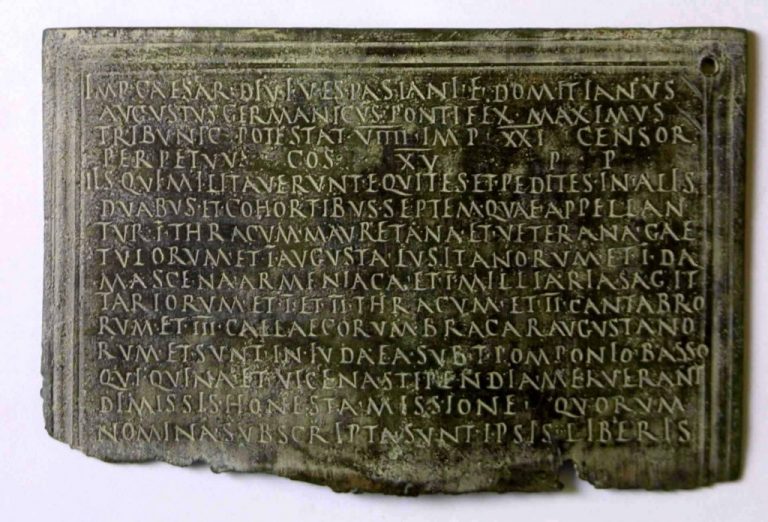 IMP·CAESAR·DIVI·VESPASIANI·F·DOMITIANVS
AVGVSTVS GERMANICVS·PONTIFEX MAXIMVS
TRIBVNIC·POTESTAT·VIIII·IMP·XXI CENSOR
PERPETVVS COS XV P P
IIS·QVI MILITAVERVNT·EQVITES·ET·PEDITES·IN·ALIS
DVABVS·ET·COHORTIBVS·SEPTEM·QVAE·APPELLAN
TVR·I·THRACVM·MAVRETANA·ET·VETERANA·GAE
TVLORVM·ET·I·AVGVSTA·LVSITANORVM·ET·I·DA
MASCENA·ARMENIACA·ET·I·MILLIARIA·SAGIT
TARIORVM·ET·I·ET·II·THRACVM·ET·II·CANTABRO
RVM·ET·III·CALLAECORVM·BRACARAVGVSTANO
RVM·ET·SVNT·IN·IVDAEA·SVB·T·POMPONIO·BASSO
QVI·QVINA·ET·VICENA·STIPENDIA·MERVERANT
DIMISSIS·HONESTA·MISSIONE·QVORVM
NOMINA·SVBSCRIPTA·SVNT·IPSIS·LIBERIS